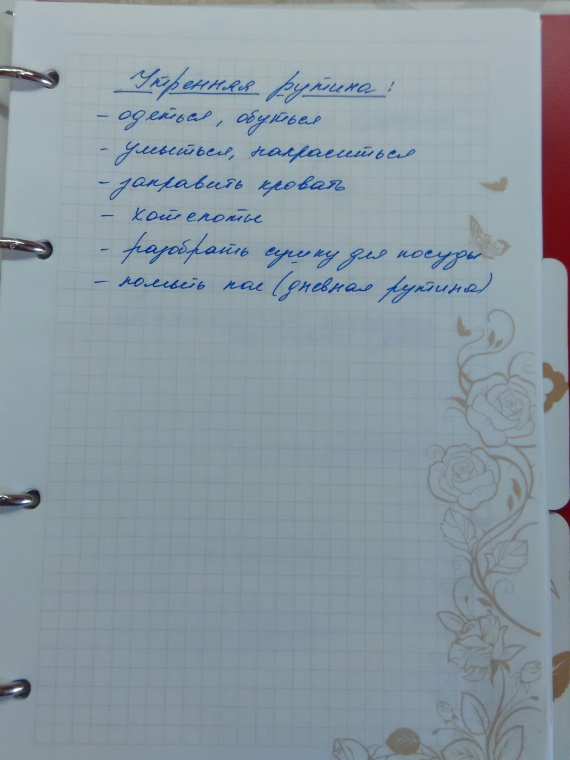 Утренняя рутина:
- одеться, обуться
- умыться, накраситься
- заправить кровать
- хотспоты
- разобрать сушку для посуды
- помыть пол (дневная рутина)